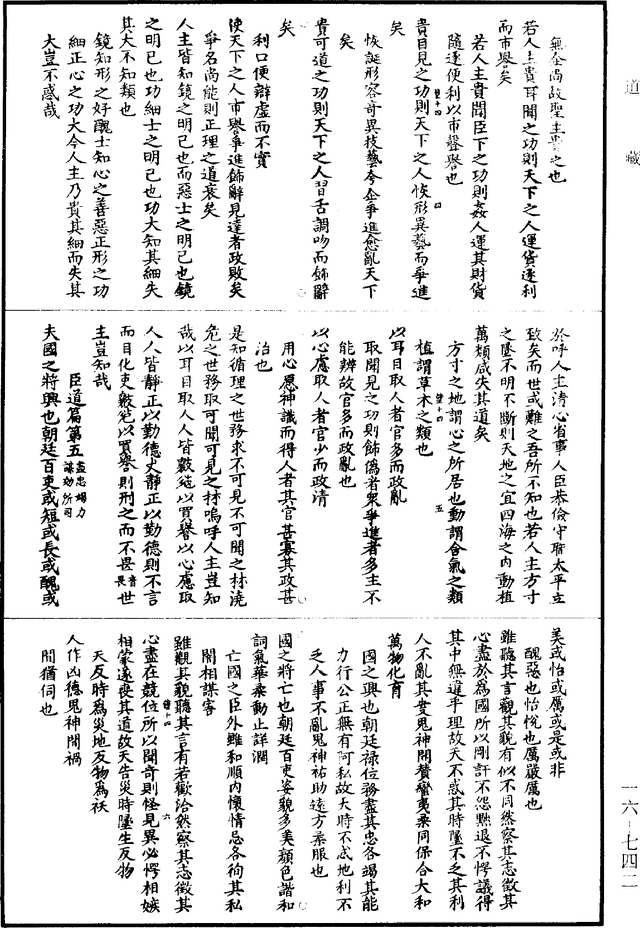 道藏
無舍尚故聖主貴之也
若人主貴耳聞之功則天下之人運貨逐利
而市譽矣
若人主貴聞臣下之功則姦人運其財貨
隨逐便利以市聲譽也
貴目見之功則天下之人恢形異藝而爭進
矣
恢誕形容奇異技藝夸企爭進愈亂天下
矣
貴可道之功則天下之人習舌調吻而飾辭
矣
利口便辭虛而不實
使天下之人市譽爭進飾辭見達者政敗矣
爭名尚能則正理之道衰矣
人主皆知鏡之明己也而惡士之明己也鏡
之明己也功細士之明己也功大知其細失
其大不知類也
鏡知形之好醜士知心之善惡正形之功
細正心之功大今人主乃貴其細而失其
大豈不惑哉
於呼人主清心省事人臣恭儉守職太平立
致矣而世或難之吾所不知也若人主方寸
之墜不明不斷則天地之宜四海之內動植
萬類咸失其道矣
方寸之地謂心之所居也動謂含氣之類
植謂草木之類也
以耳目取人者官多而政亂
取聞見之功則飾偽者衆爭進者多主不
能辨故官多而政亂也
以心慮取人者官少而政清
用心慮神識而得人者其官甚寡其政甚
治也
是知循理之世務求不可見不可聞之材澆
危之世務取可聞可見之材嗚呼人主豈知
哉以耳目取人人皆敷㝹以買譽以心慮取
人人皆靜正以勤德吏靜正以勤德則不言
而目化吏敷㝹以買譽則刑之而不畏音畏世
主豈知哉
臣道篇第五盡忠竭力謀効所司
夫國之將興也朝廷百吏或短或長或醜或
美或怡或厲或是或非
醜惡也怡悅也厲嚴厲也
雖聽其言觀其貌有似不同然察其志徵其
心盡於為國所以剛訐不怨黜退不愕議得
其中無違乎理故天不惑其時墜不乏其利
人不亂其事鬼神開贊蠻夷柔同保合大和
萬物化育
國之興也朝廷祿位務盡其忠各竭其能
力行公正無有阿私故天時不忒地利不
乏人事不亂鬼神祐助遠方柔服也
國之將亡也朝廷百吏姿貌多美顏色諧和
詞氣華柔動止詳潤
亡國之臣外雖和順內懷情忌各徇其私
闇相謀害
雖觀其貌聽其言有若歡洽然察其志徵其
心盡在競位所以聞奇則怪見異必愕相嫉
相蒙遂喪其道故天告災時墜生反物
天反時為災地反物為祅
人作凶德鬼神間禍
間猶伺也
一六-七四二